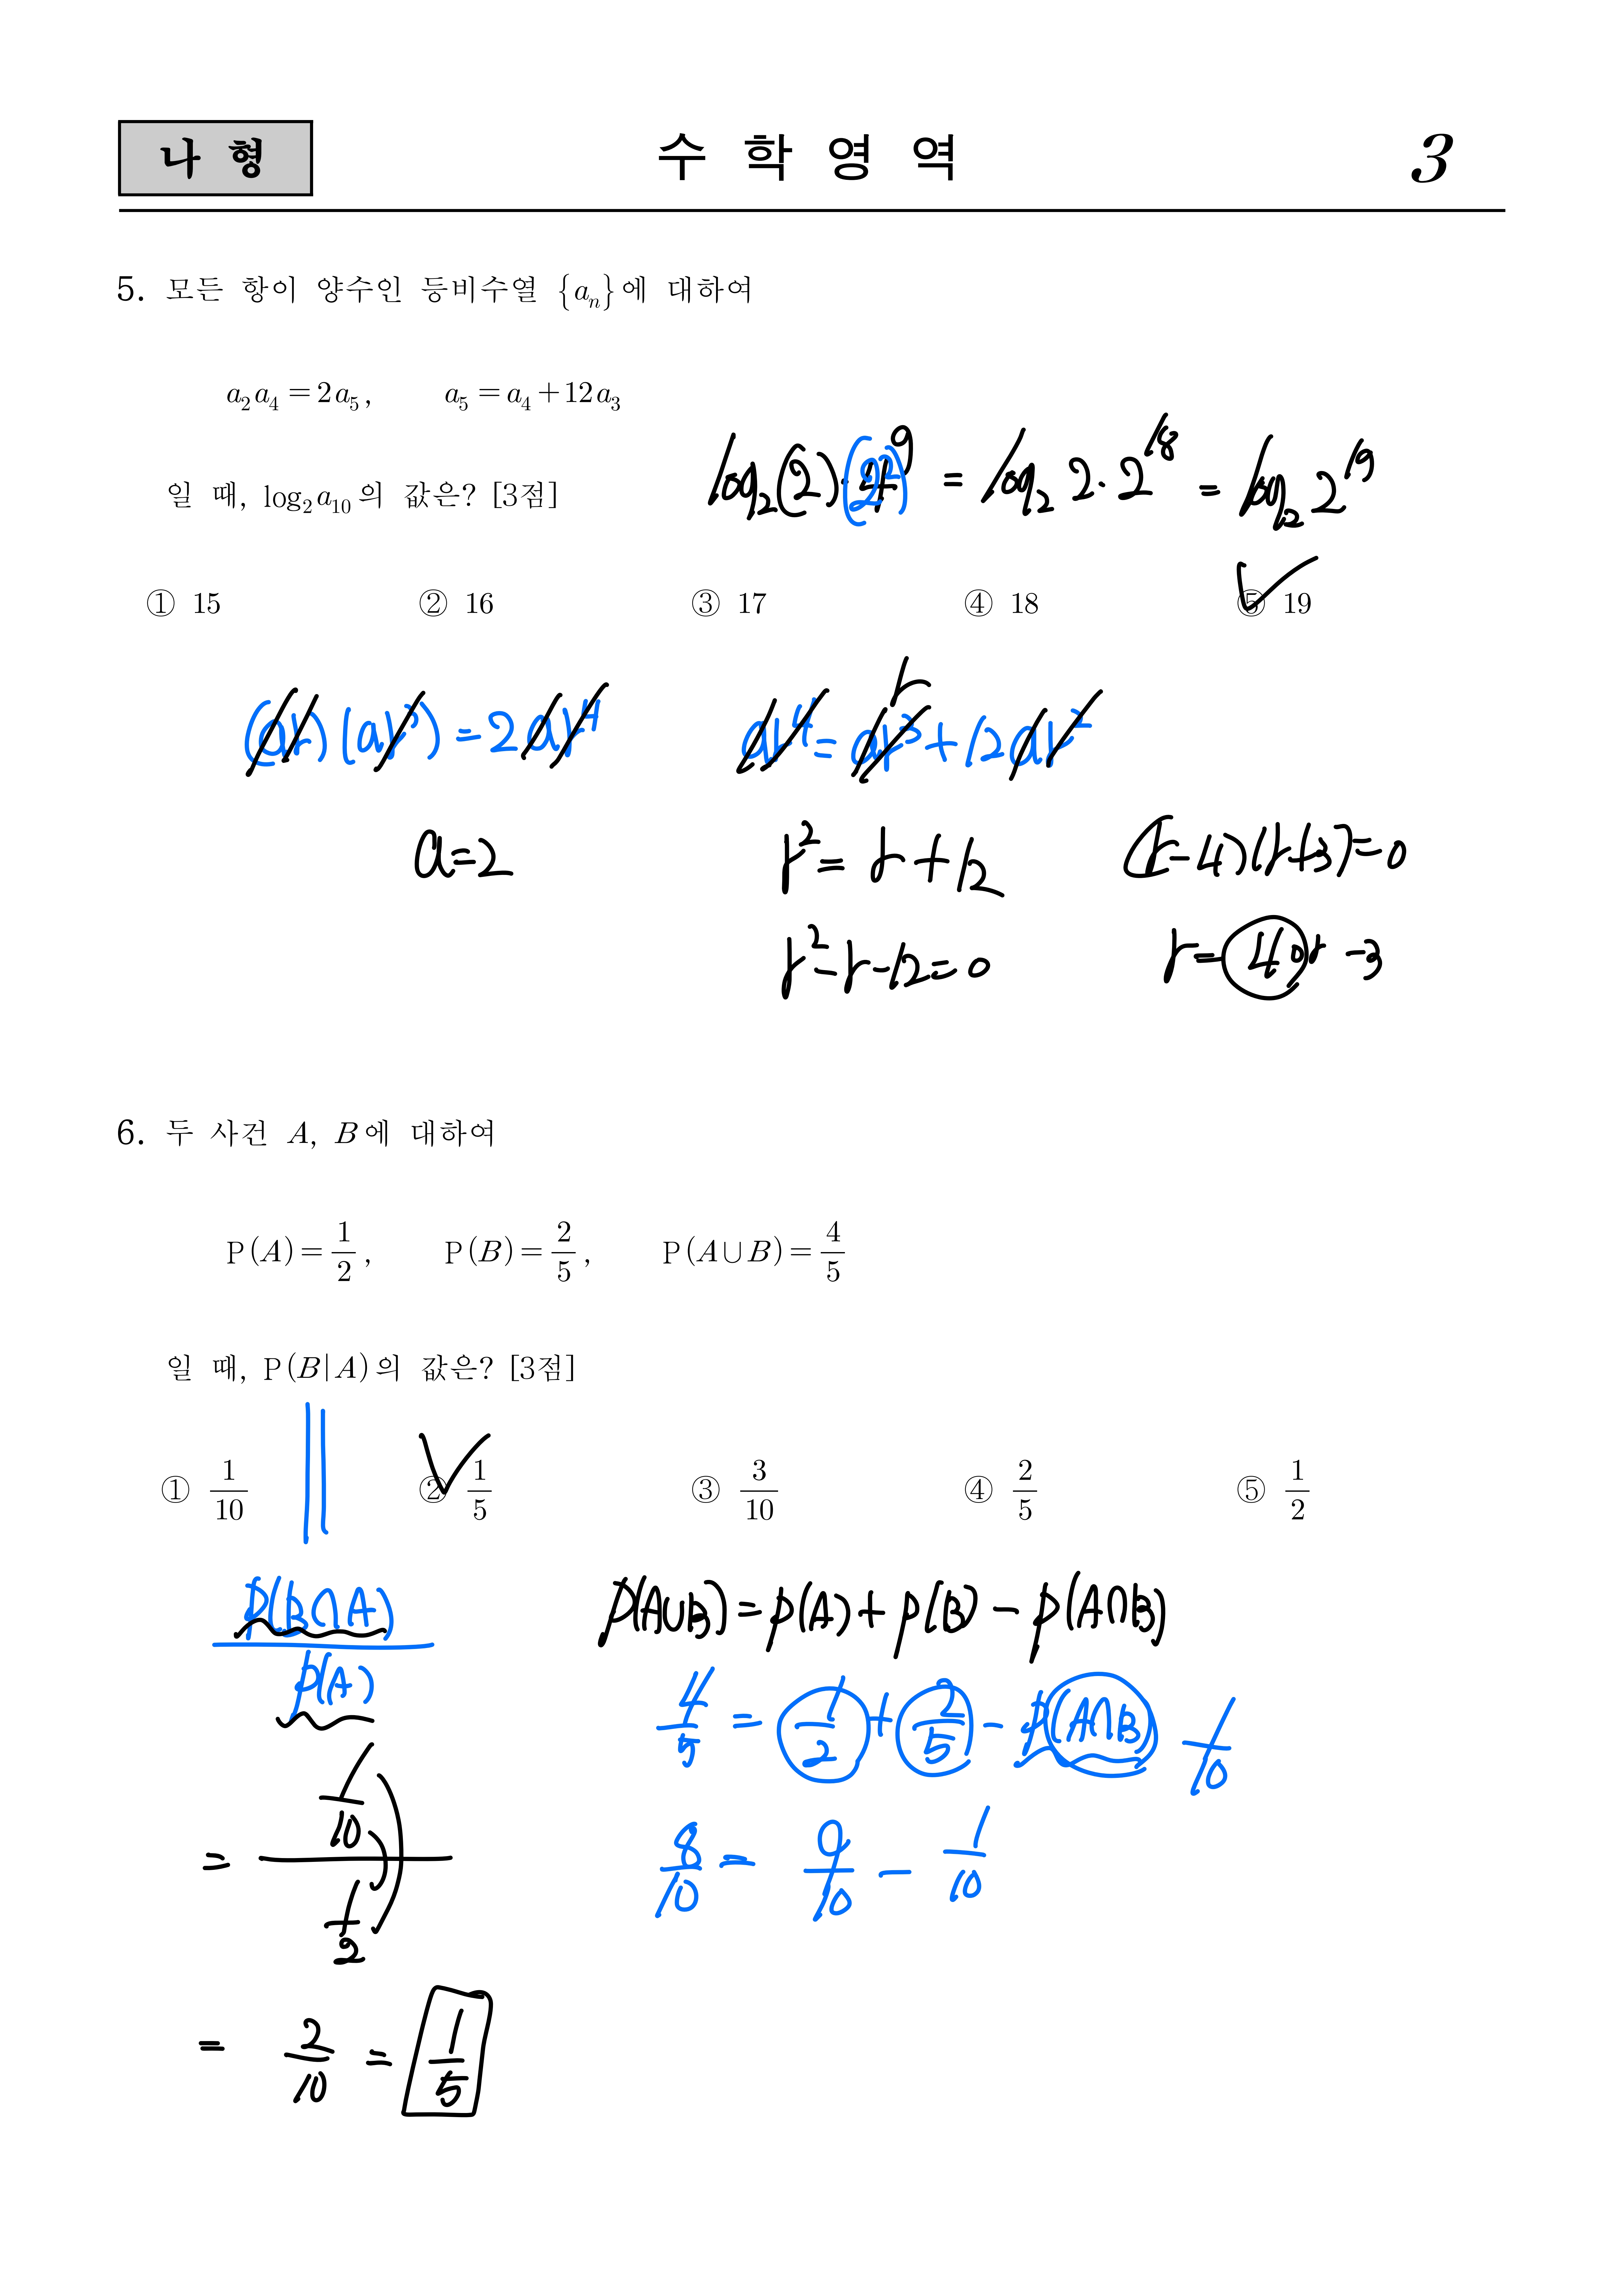 나 형
수 학 영 역
3
5. 모든 항이 양수인 등비수열 {aₙ}에 대하여
a₂a₄ = 2a₅, a₅ = a₄ + 12a₃
일 때, log₂a₁₀의 값은? [3점]
log₂(2)·(2²)⁹ = log₂ 2·2¹⁸ = log₂ 2¹⁹
① 15 ② 16 ③ 17 ④ 18 ⑤ 19
(ar)(ar³) = 2ar⁴
a = 2
ar⁴ = ar³ + 12ar²
r
r² = r + 12
r² - r - 12 = 0
(r-4)(r+3) = 0
r = 4 or -3
6. 두 사건 A, B에 대하여
P(A) = 1/2, P(B) = 2/5, P(A∪B) = 4/5
일 때, P(B|A)의 값은? [3점]
① 1/10 ② 1/5 ③ 3/10 ④ 2/5 ⑤ 1/2
||
P(B∩A) / P(A)
= (1/10) / (1/2)
= 2/10 = 1/5
P(A∪B) = P(A) + P(B) - P(A∩B)
4/5 = 1/2 + 2/5 - P(A∩B) 1/10
8/10 = 9/10 - 1/10